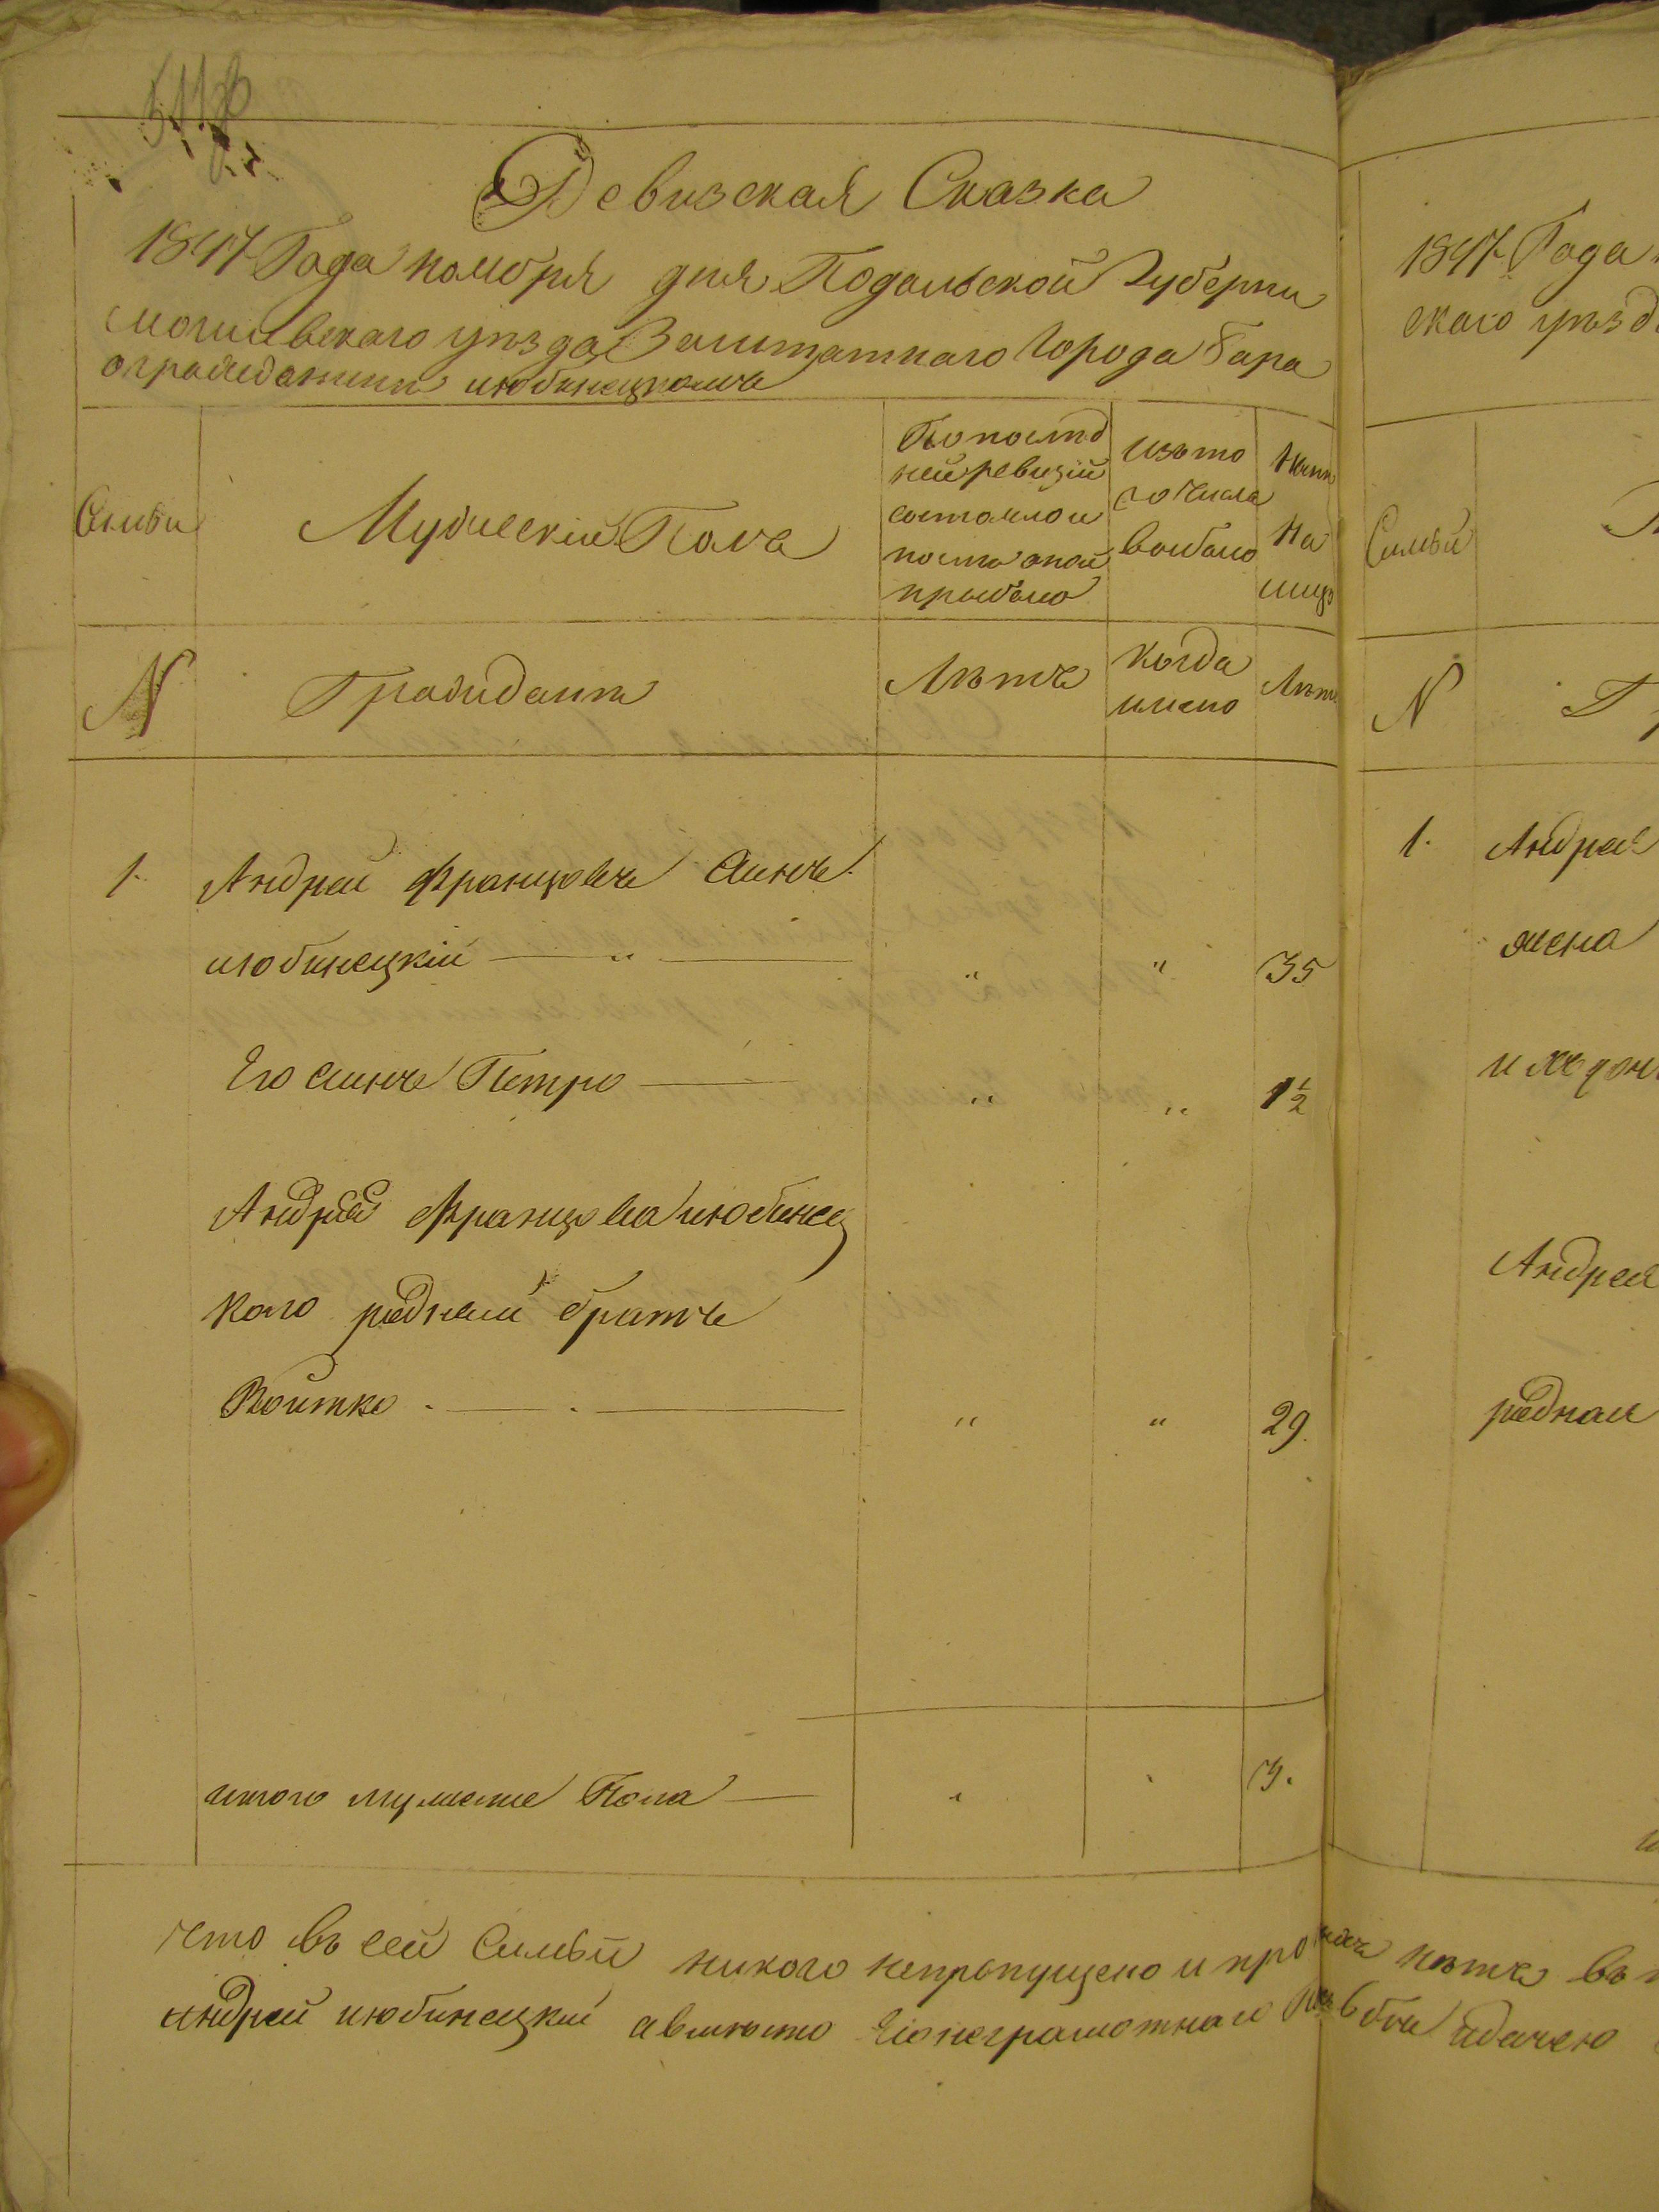 Ревизская Сказка
1847 Года ноября дня Подольской Губернии
Могилевскаго уезда Заштатнаго Города Бара
о гражданинѣ Любинецкомъ
Семьи
Мужескій Полъ
По послѣд
ней ревизіи
состояло и
после оной
прибыло
Изъ то
го Числа
выбыло
Нынѣ
На
лице
N
Гражданѣ
Лѣтъ
Когда
имено
Лѣтъ
1. Андрей Францовъ Сынъ
Любинецкій " " " 35
Его Сынъ Петро " " 1½
Андрея Францова Любинец
кого родный братъ
Войтко " " 29.
итого мужеске Пола " " 3.
что въ сей Семьи никого непропущено и про нѣтъ въ
Андрей Любинецкій неграмотный
1847 Года
скаго уѣзд
Семьи
N
1. Андрея
жена
и
Андрея
родная